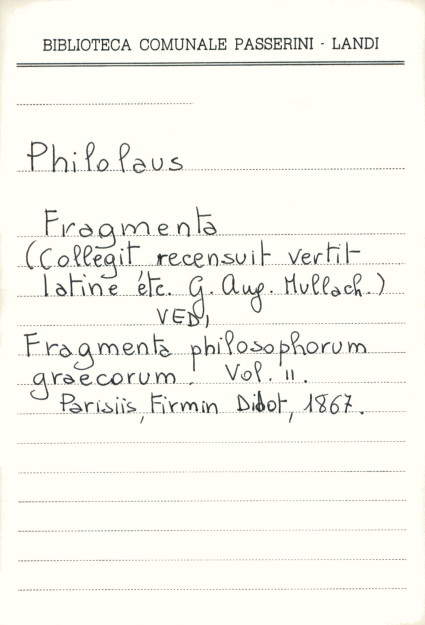 BIBLIOTECA COMUNALE PASSERINI - LANDI
Philolaus
Fragmenta
(Collegit recensuit vertit
latine etc. G. Aug. Mullach.)
VEDI
Fragmenta philosophorum
graecorum. Vol. II.
Parisiis, Firmin Didot, 1867.